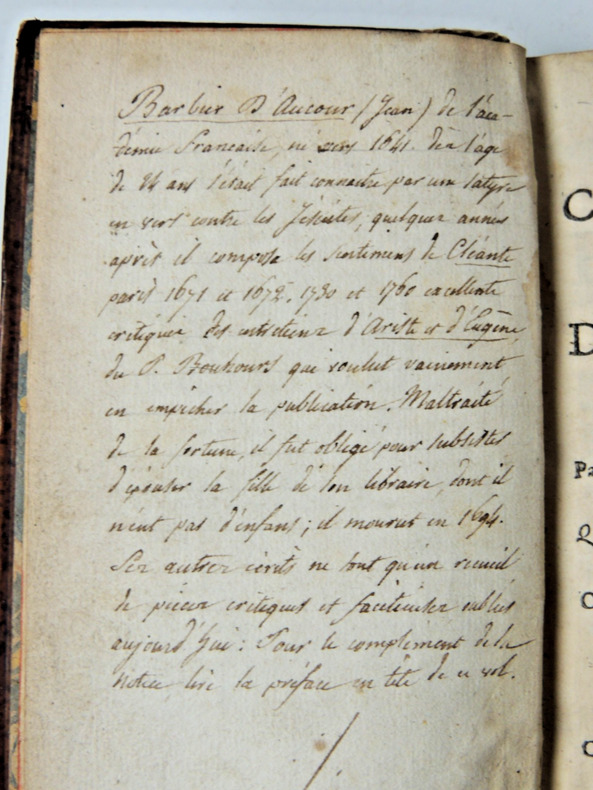 Barbier D'Aucour (Jean) de l'aca-
démie Francaise, né vers 1641. dèz l'age
de 24 ans s'était fait connaitre par une satyre
en vers contre les Jésuites, quelques années
après il composa les sentimens de Cléante
paris 1671 et 1672. 1730 et 1760 excellente
critique des entretiens d'Ariste et d'Eugène,
du P. Bouhours qui voulut vainement
en empêcher la publication. Maltraité
de la fortune, il fut obligé pour subsister
d'épouser la fille de son libraire, dont il
n'eut pas d'enfans; il mourut en 1694.
Ses autres écrits ne sont qu'un recueil
de pièces critiques et facétieuses oubliés
aujourd'hui: Pour le complément de la
notice, lire la préface en tête de ce vol.
C
D
Pa
C